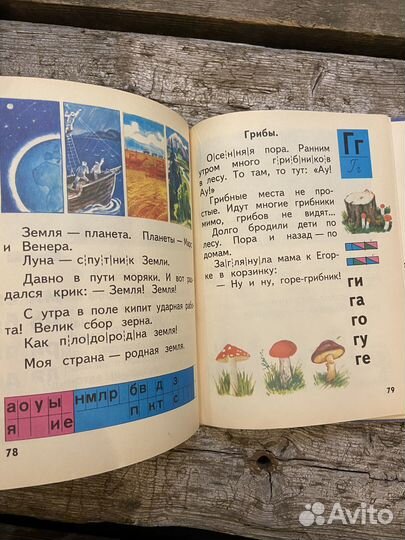 Земля — планета. Планеты — Марс
и Венера.
Луна — с|пу|т|ни|к Земли.
Давно в пути моряки. И вот раз-
дался крик: — Земля! Земля!
С утра в поле кипит ударная рабо-
та! Велик сбор зерна.
Как п|ло|до|ро|д|на земля!
Моя страна — родная земля.
а о у ы н м л р б в д з
я и е п к т с
78
Грибы.
О|се|н|ня|я пора. Ранним
утром много г|ри|б|ни|ко|в
в лесу. То там, то тут: «Ау!
Ау!»
Грибные места не про-
стые. Идут многие грибники
мимо, грибов не видят...
Долго бродили дети по
лесу. Пора и назад — по
домам.
За|г|ля|ну|ла мама к Егор-
ке в корзинку:
— Ну и ну, горе-грибник!
Гг
Гг
ги
га
го
гу
ге
79
Avito